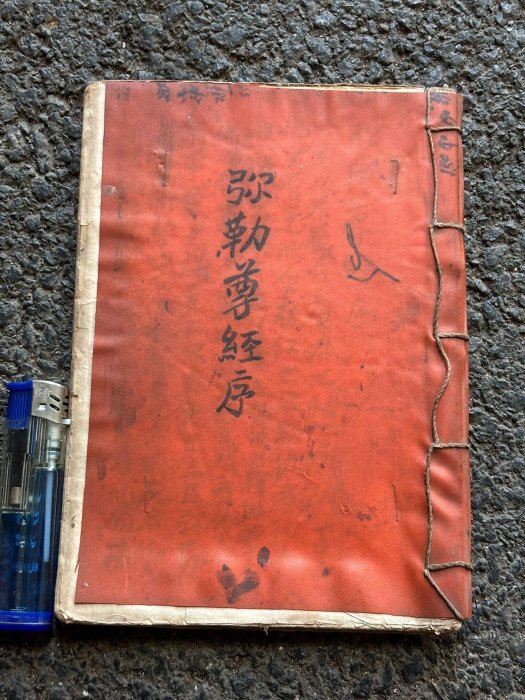 弥勒尊經序